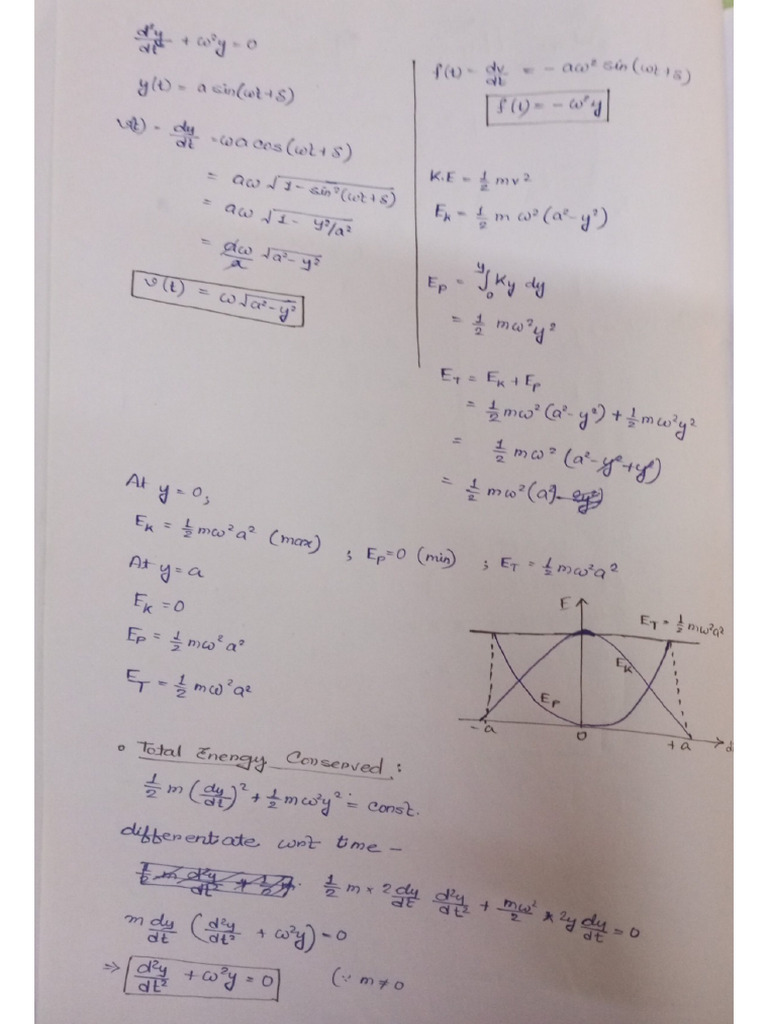 d²y/dt² + ω²y = 0
y(t) = a sin(ωt + δ)
v(t) = dy/dt = ωa cos(ωt + δ)
= aω √(1 - sin²(ωt + δ))
= aω √(1 - y²/a²)
= aω/a √(a² - y²)
v(t) = ω√(a² - y²)
f(t) = dv/dt = - aω² sin(ωt + δ)
f(t) = - ω²y
K.E = 1/2 mv²
E_K = 1/2 m ω²(a² - y²)
E_P = ∫₀^y Ky dy
= 1/2 mω²y²
E_T = E_K + E_P
= 1/2 mω²(a² - y²) + 1/2 mω²y²
= 1/2 mω² (a² - y² + y²)
= 1/2 mω²(a²)
At y = 0,
E_K = 1/2 mω²a² (max) ; E_P = 0 (min) ; E_T = 1/2 mω²a²
At y = a
E_K = 0
E_P = 1/2 mω²a²
E_T = 1/2 mω²a²
E
E_T = 1/2 mω²a²
E_K
E_P
-a 0 +a
• Total Energy Conserved :
1/2 m (dy/dt)² + 1/2 mω²y² = const.
differentiate wrt time -
1/2 m × 2 dy/dt d²y/dt² + mω²/2 × 2y dy/dt = 0
m dy/dt (d²y/dt² + ω²y) = 0
⇒ d²y/dt² + ω²y = 0 (∵ m ≠ 0